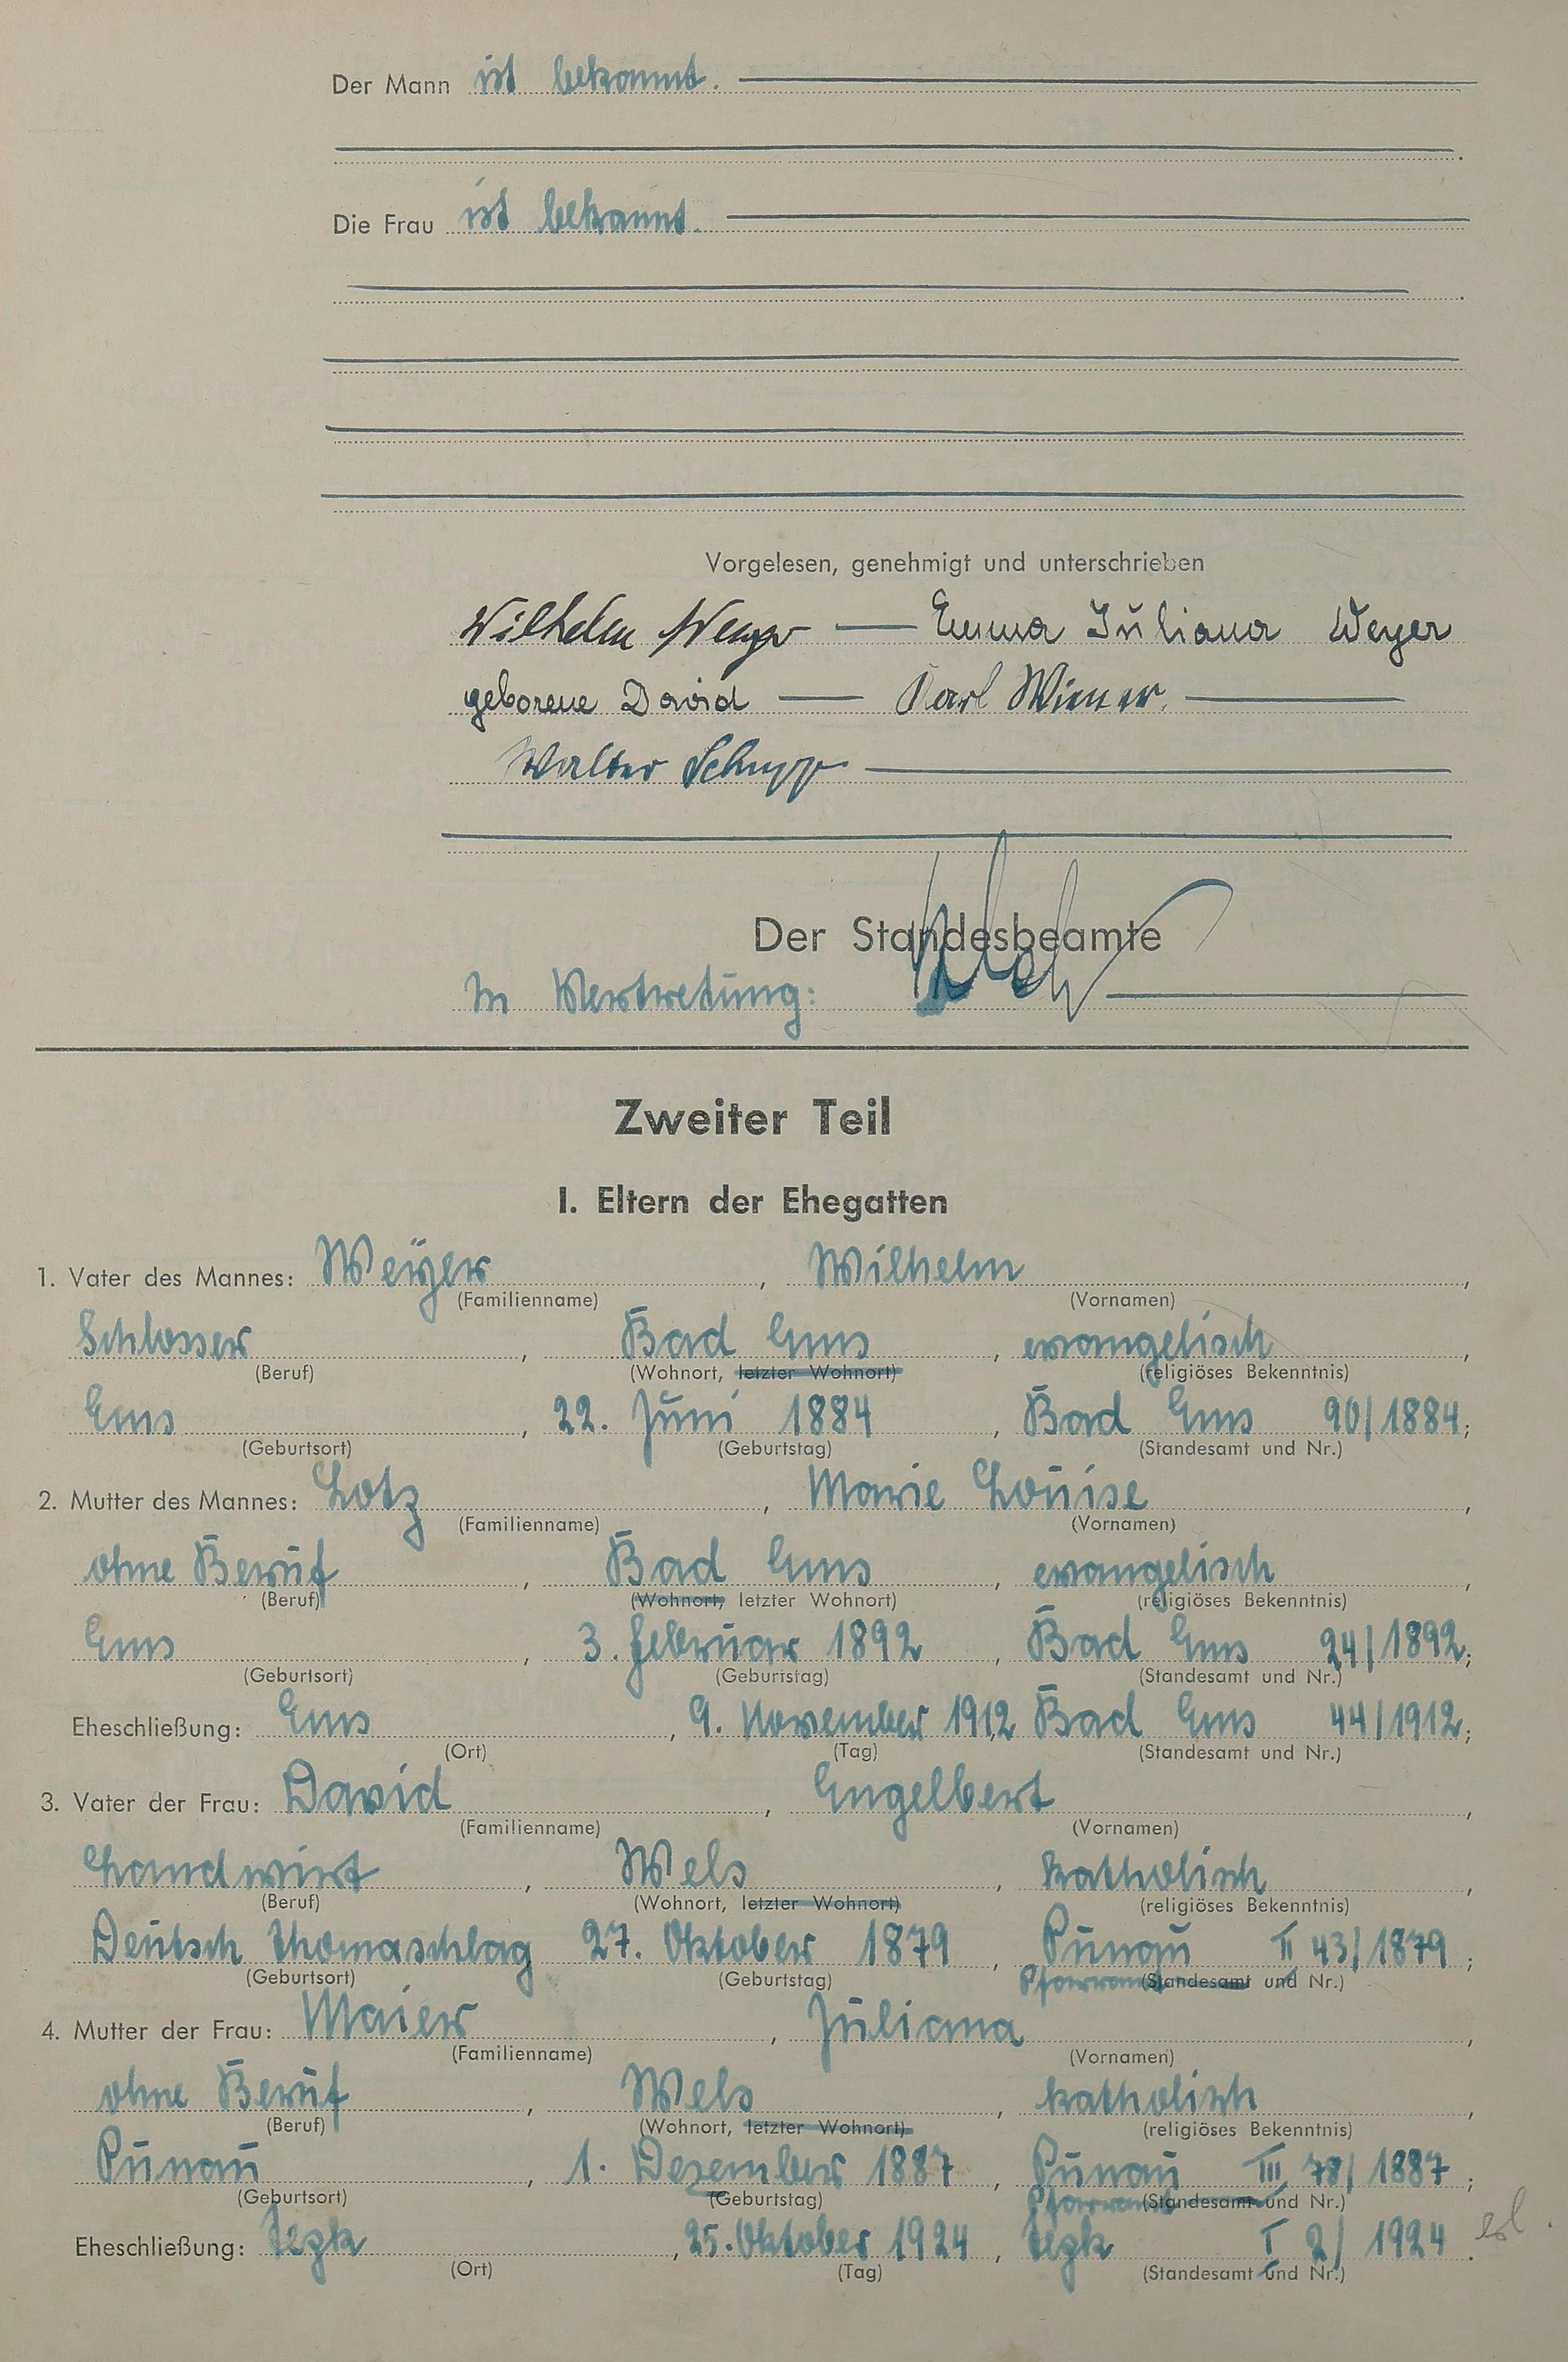 Der Mann ist bekannt.
Die Frau ist bekannt.
Vorgelesen, genehmigt und unterschrieben
Wilhelm Weyer — Emma Juliana Weyer
geborene David — Karl Wiemer.
Walter Schupp
Der Standesbeamte
In Vertretung:
Zweiter Teil
I. Eltern der Ehegatten
1. Vater des Mannes: Weyer, Wilhelm,
(Familienname) (Vornamen)
Schlosser, Bad Ems, evangelisch,
(Beruf) (Wohnort, letzter Wohnort) (religiöses Bekenntnis)
Ems, 22. Juni 1884, Bad Ems 90/1884;
(Geburtsort) (Geburtstag) (Standesamt und Nr.)
2. Mutter des Mannes: Lotz, Marie Louise,
(Familienname) (Vornamen)
ohne Beruf, Bad Ems, evangelisch,
(Beruf) (Wohnort, letzter Wohnort) (religiöses Bekenntnis)
Ems, 3. Februar 1892, Bad Ems 24/1892;
(Geburtsort) (Geburtstag) (Standesamt und Nr.)
Eheschließung: Ems, 9. November 1912, Bad Ems 44/1912;
(Ort) (Tag) (Standesamt und Nr.)
3. Vater der Frau: David, Engelbert,
(Familienname) (Vornamen)
Landwirt, Wels, katholisch,
(Beruf) (Wohnort, letzter Wohnort) (religiöses Bekenntnis)
Deutsch Thomaschlag 27. Oktober 1879, Punau II 43/1879;
(Geburtsort) (Geburtstag) Pfarramt (Standesamt und Nr.)
4. Mutter der Frau: Maier, Juliana,
(Familienname) (Vornamen)
ohne Beruf, Wels, katholisch,
(Beruf) (Wohnort, letzter Wohnort) (religiöses Bekenntnis)
Punau, 1. Dezember 1887, Punau III 78/1887;
(Geburtsort) (Geburtstag) Pfarramt (Standesamt und Nr.)
Eheschließung: Iegk, 25. Oktober 1924, Iegk I 2/1924.
(Ort) (Tag) (Standesamt und Nr.)